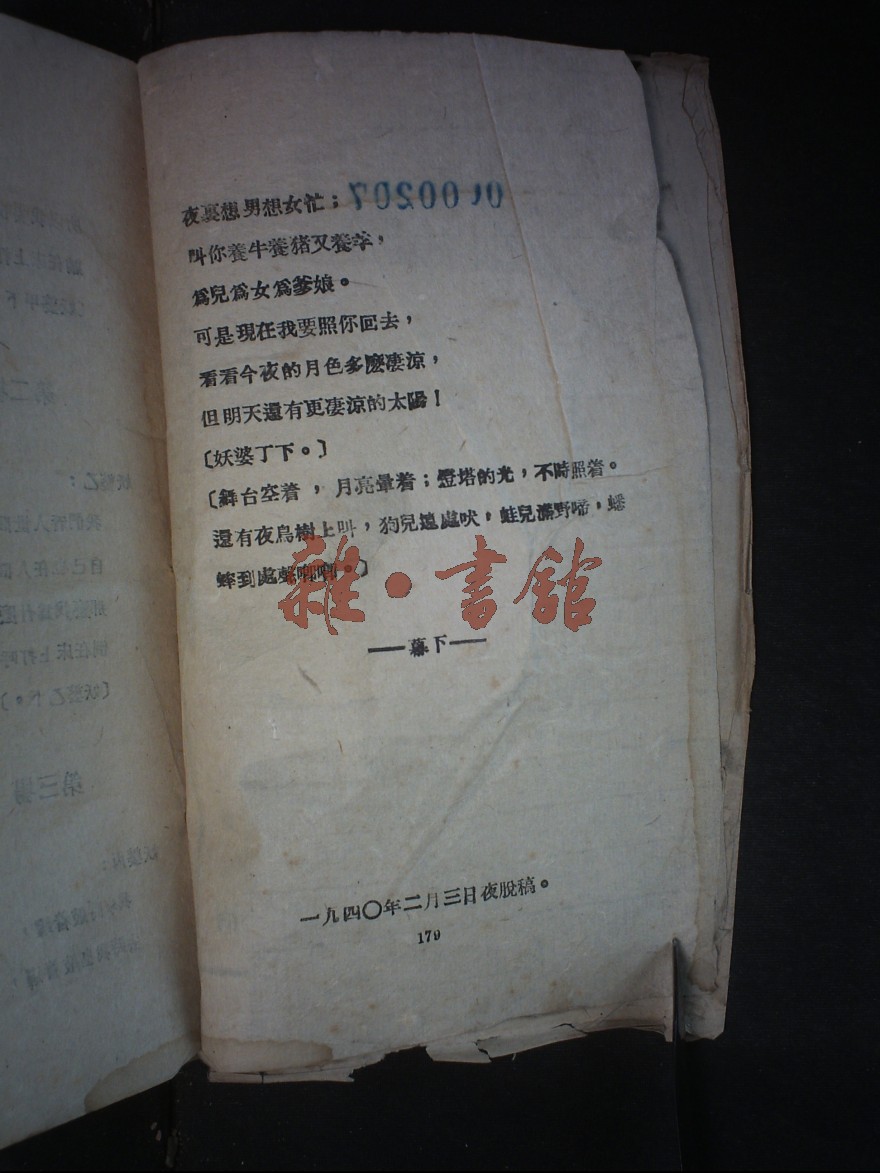 夜裏想男想女忙；
0000207
叫你養牛養猪又養羊，
爲兒爲女爲爹娘。
可是現在我要照你回去，
看看今夜的月色多麽凄涼，
但明天還有更凄涼的太陽！
〔妖婆丁下。〕
〔舞台空着，月亮暈着；燈塔的光，不時照着。
還有夜鳥樹上叫，狗兒遠處吠，蛙兒滿野啼，蟋
蟀到處聲唧唧。〕
雜·書館
——幕下——
一九四〇年二月三日夜脫稿。
179
第三場
〔妖婆乙下。〕